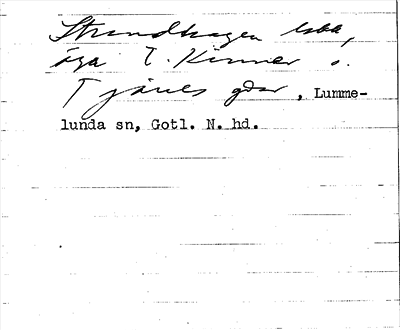 Strandhagen lska,
äga t. Kinner o.
Tjänes gdar, Lumme-
lunda sn, Gotl. N. hd.